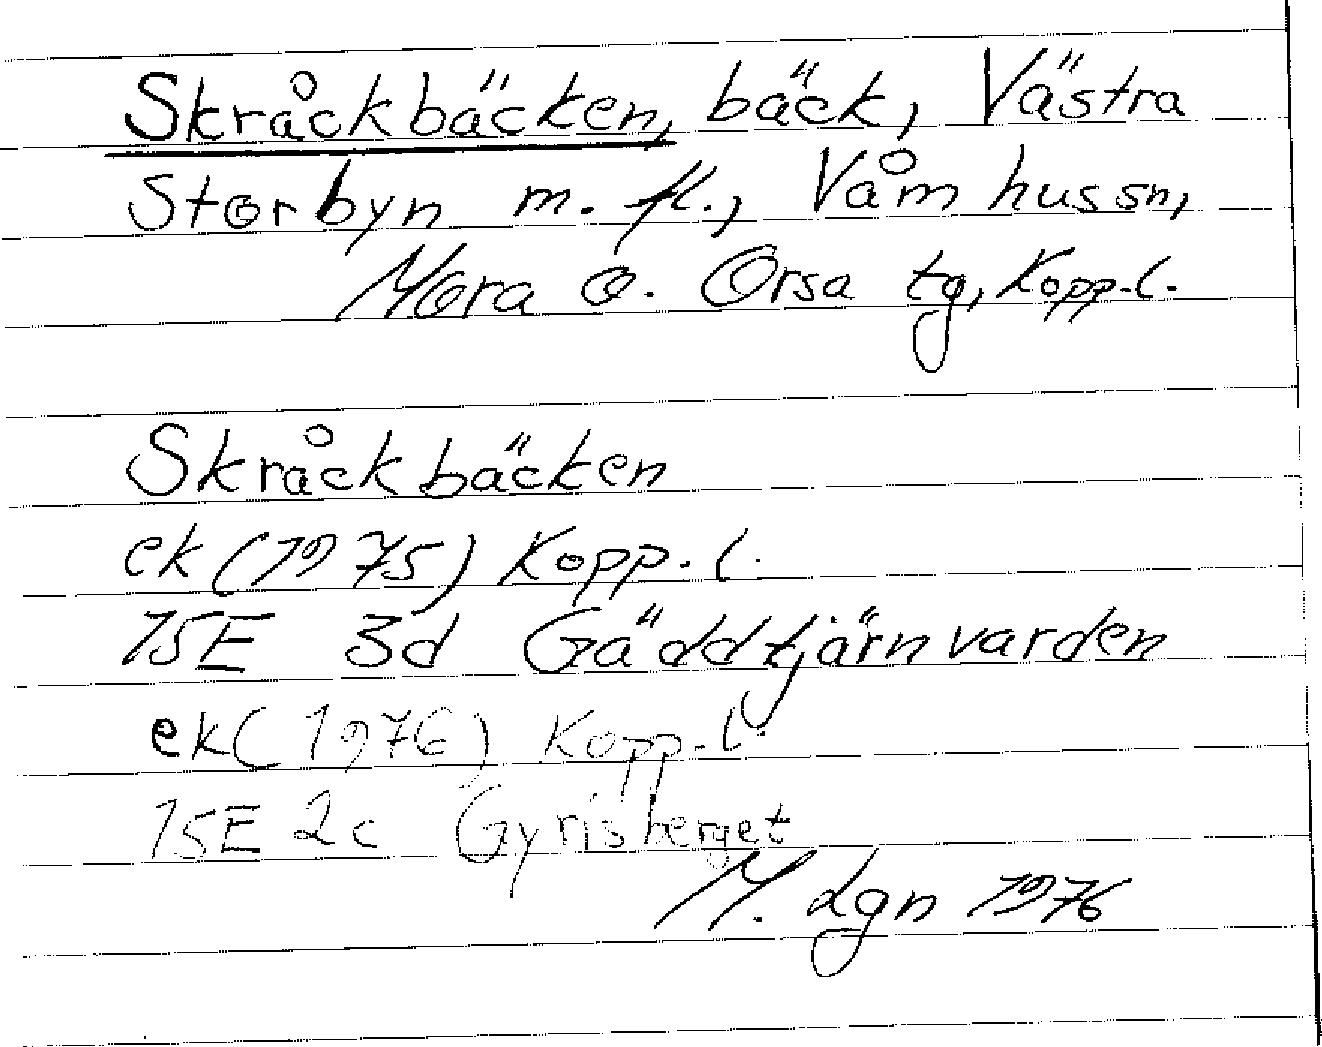 Skråckbäcken, bäck, Västra
Storbyn m. fl., Våmhus sn,
Mora o. Orsa tg, Kopp. l.
Skråckbäcken
ek (1975) Kopp. l.
15E 3d Gäddtjärnvarden
ek (1976) Kopp. l.
15E 2c Gyrisberget
M. Lgn 1976